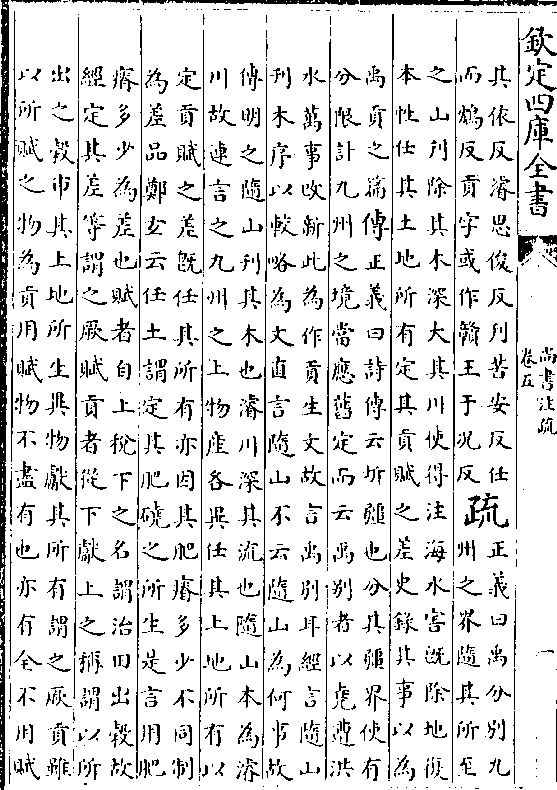 欽定四庫全書
尚書注疏
卷五
一
其依反濬思俊反刋苦安反任
而鴆反貢字或作贑王于况反
疏
正義曰禹分别九
州之界隨其所至
之山刋除其木深大其川使得注海水害既除地復
本性任其土地所有定其貢賦之差史録其事以為
禹貢之篇
傳正義曰詩傳云圻疆也分其疆界使有
分限計九州之境當應舊定而云禹别者以堯遭洪
水萬事改新此為作貢生文故言禹别耳經言隨山
刋木序以較略為文直言隨山不云隨山為何事故
傳明之隨山刋其木也濬川深其流也隨山本為濬
川故連言之九州之土物產各異任其土地所有以
定貢賦之差既任其所有亦因其肥瘠多少不同制
為差品鄭玄云任土謂定其肥磽之所生是言用肥
瘠多少為差也賦者自上稅下之名謂治田出榖故
經定其差等謂之厥賦貢者從下獻上之稱謂以所
出之榖市其土地所生異物獻其所有謂之厥貢雖
以所賦之物為貢用賦物不盡有也亦有全不用賦